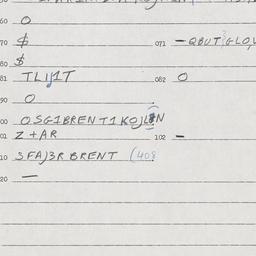 60 O
70 $ 071 -QBUT
80 $
81 TLIJ1T 082 O
90 O
00 OSG1BRENT1KOJLBN
01 Z+AR 102 -
10 SFAJ3R BRENT (408
20 -